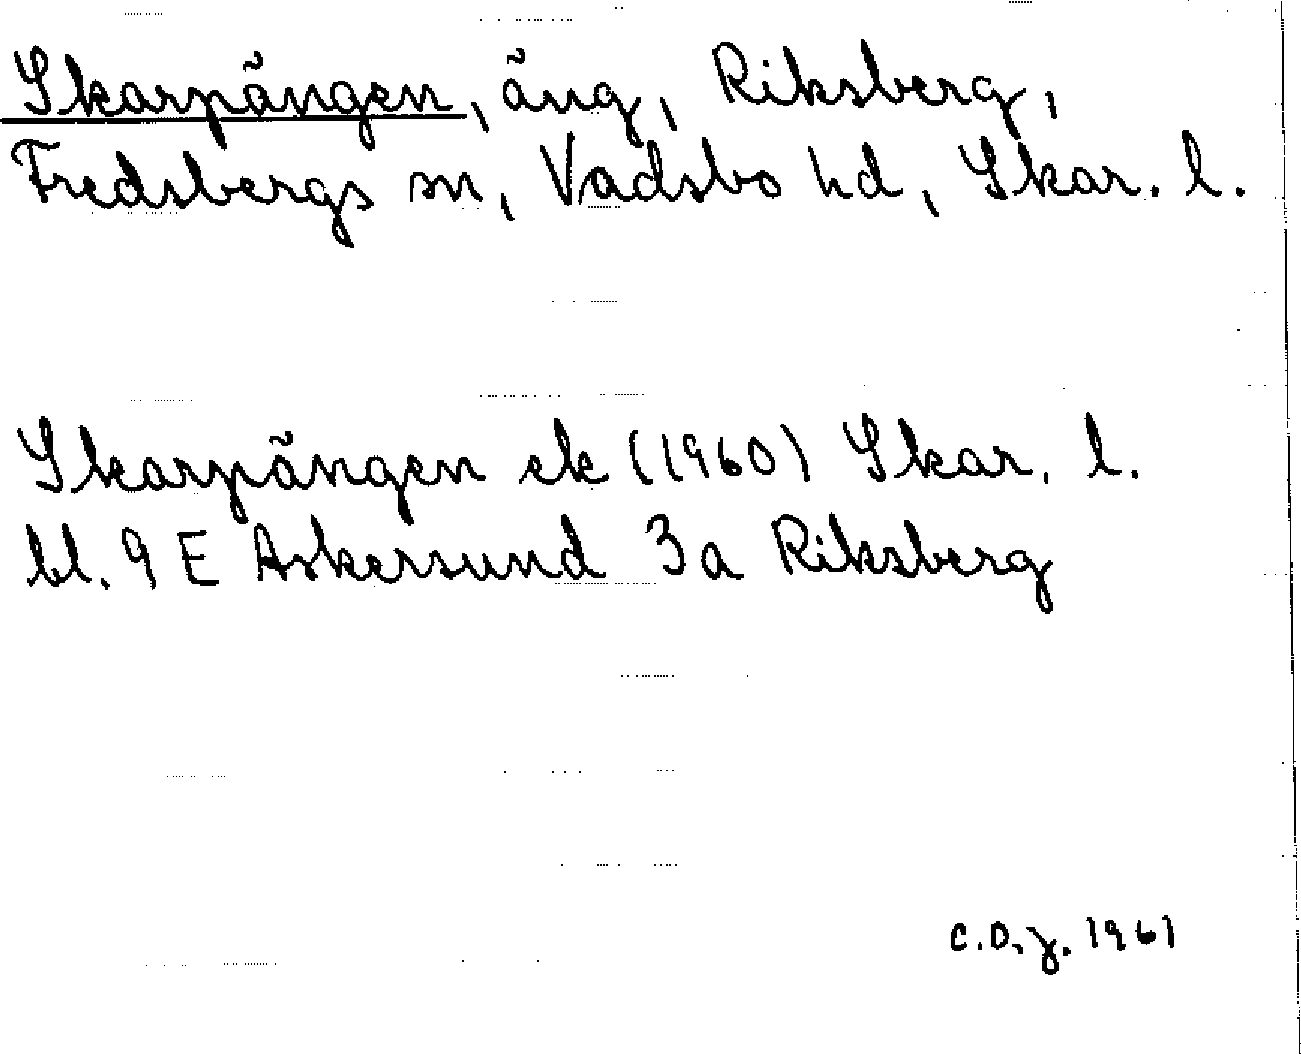 Skarpängen, äng, Riksberg,
Fredsbergs sn, Vadsbo hd, Skar. l.
Skarpängen ek (1960) Skar. l.
bl. 9 E Askersund 3a Riksberg
C.D.j. 1961